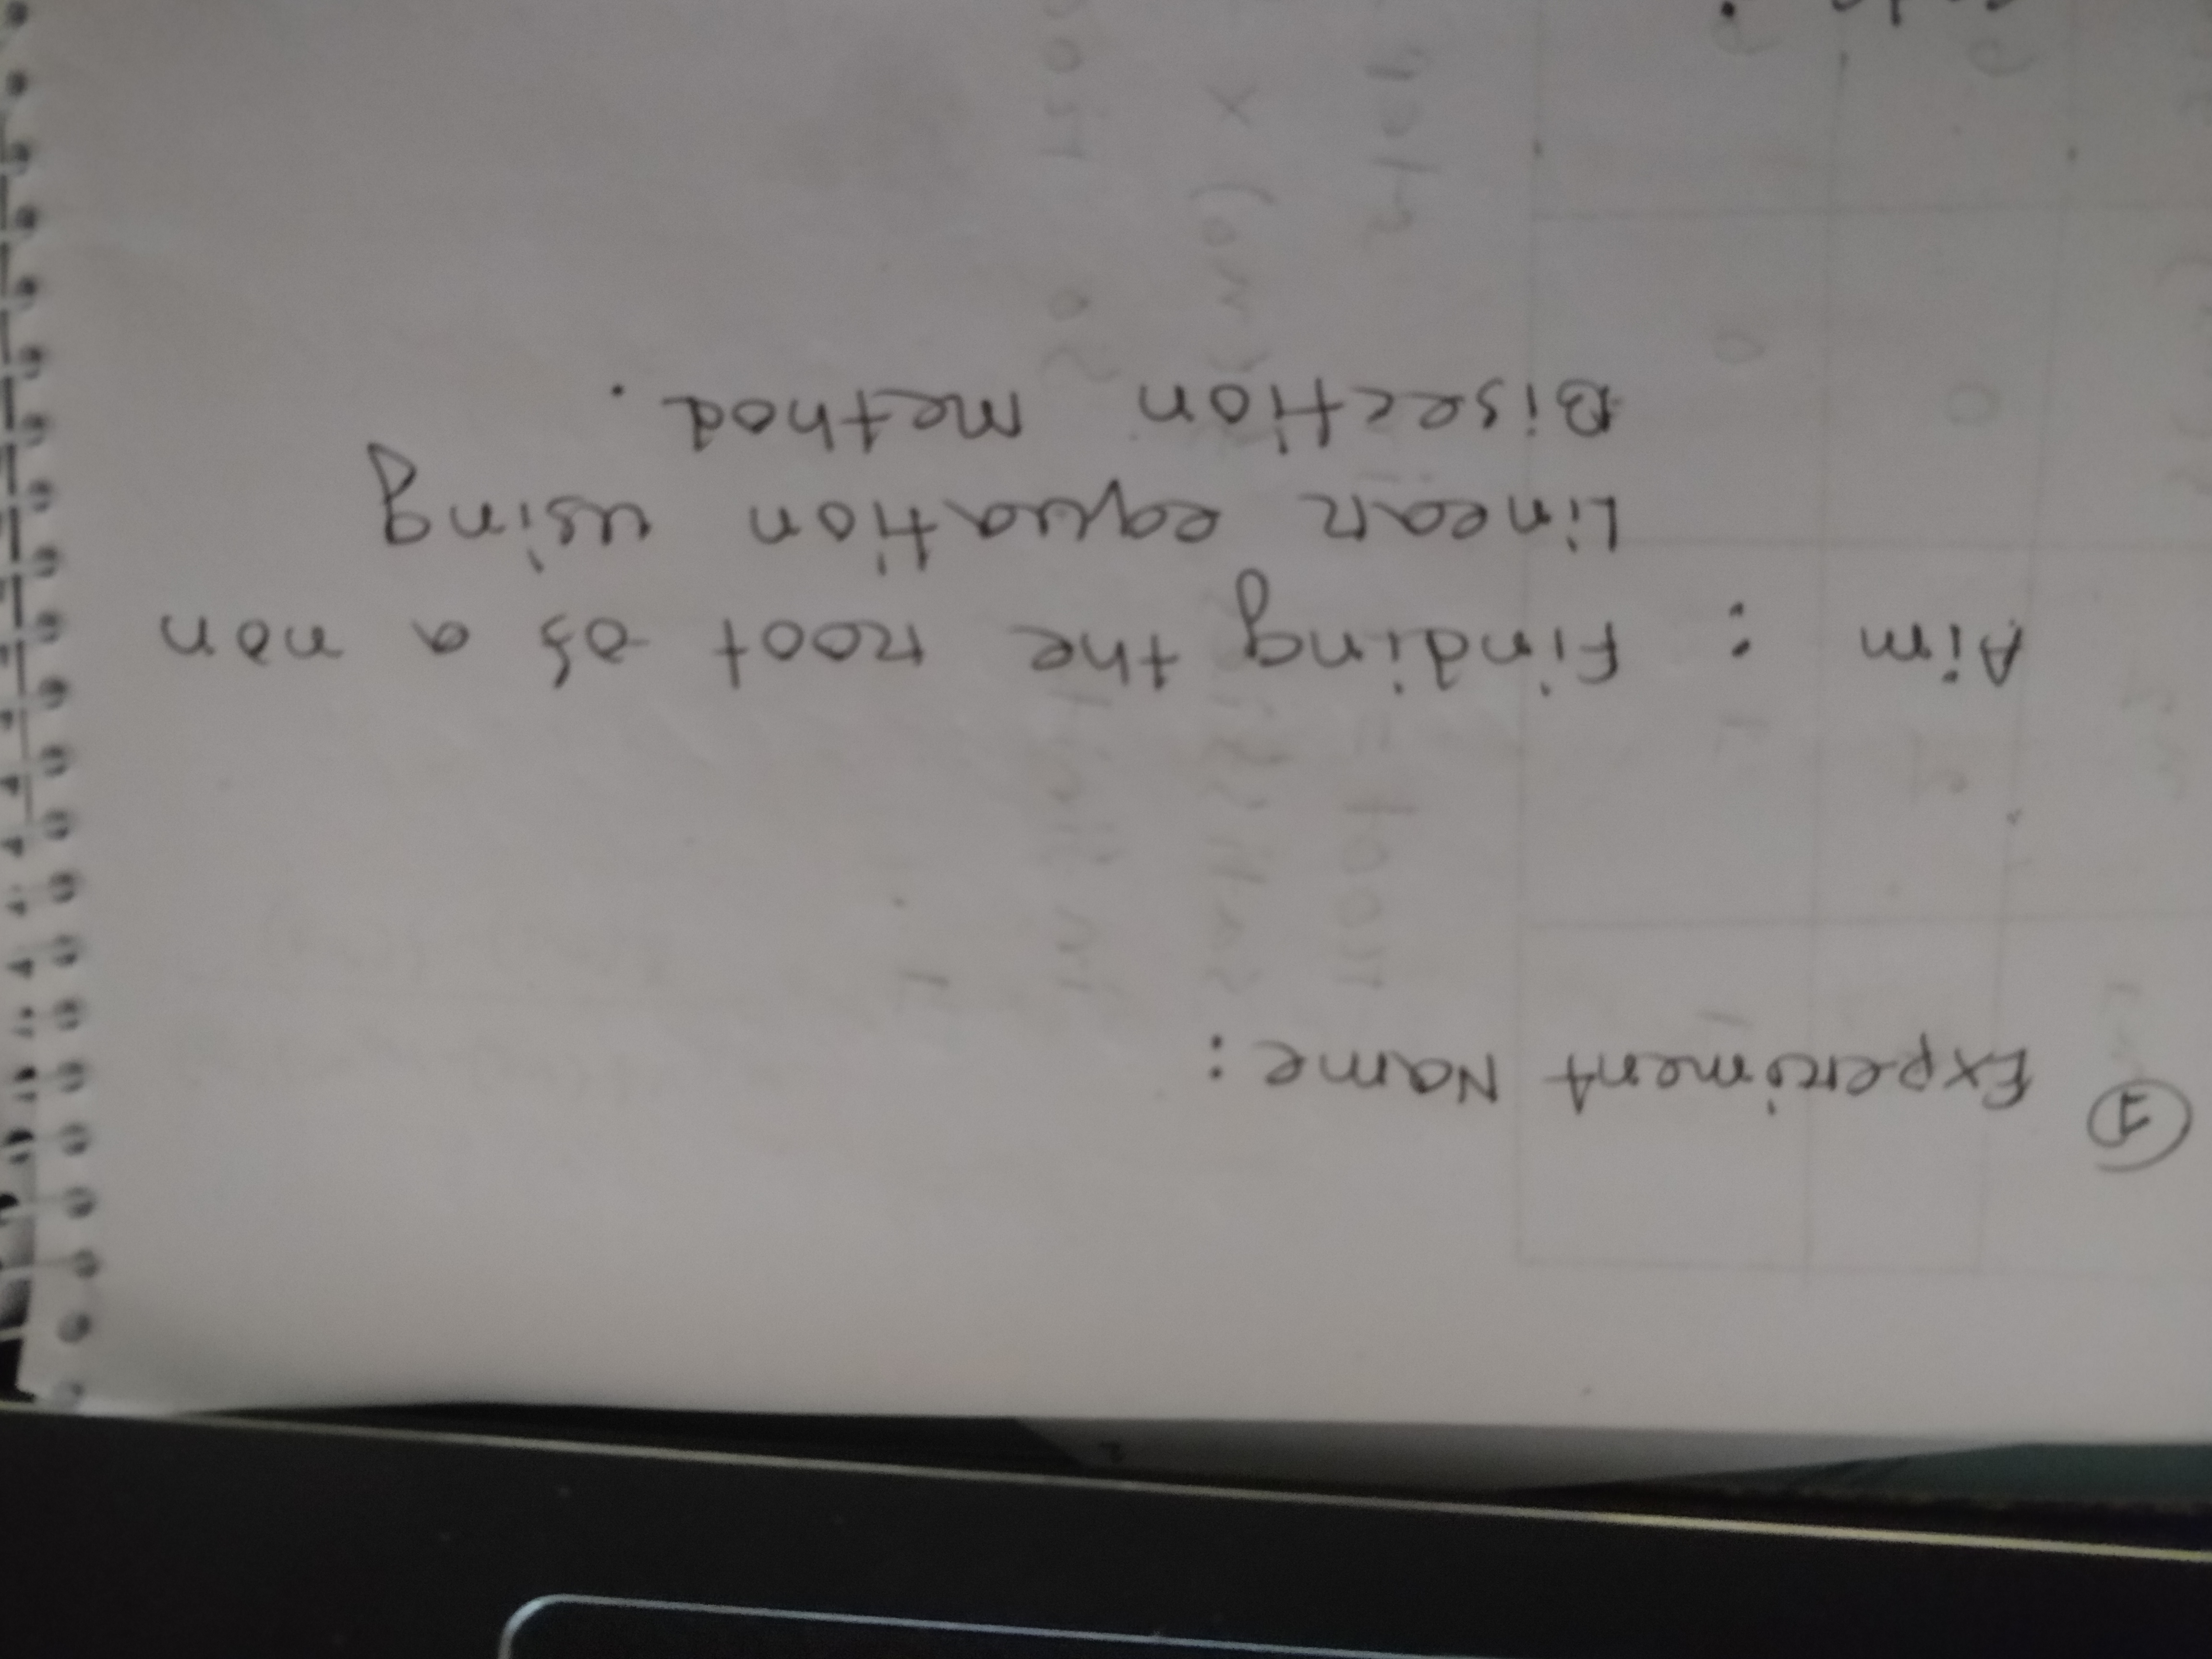 ① Experiment Name:
Aim : Finding the root of a non
Linear equation using
Bisection method.